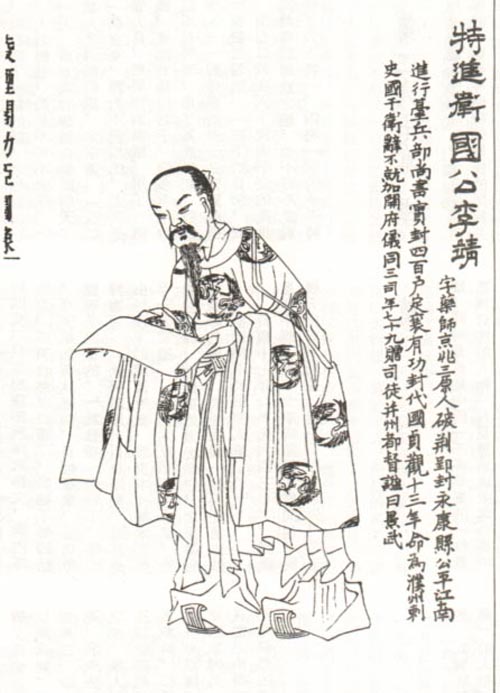 特進衛國公李靖
字藥師京兆三原人破荆郢封永康縣公平江南
進行臺兵部尚書實封四百戶定襄有功封代國貞觀十三年命爲濮州刺
史國于衛辭不就加開府儀同三司年七十九贈司徒并州都督諡曰景武
凌煙閣功臣圖像